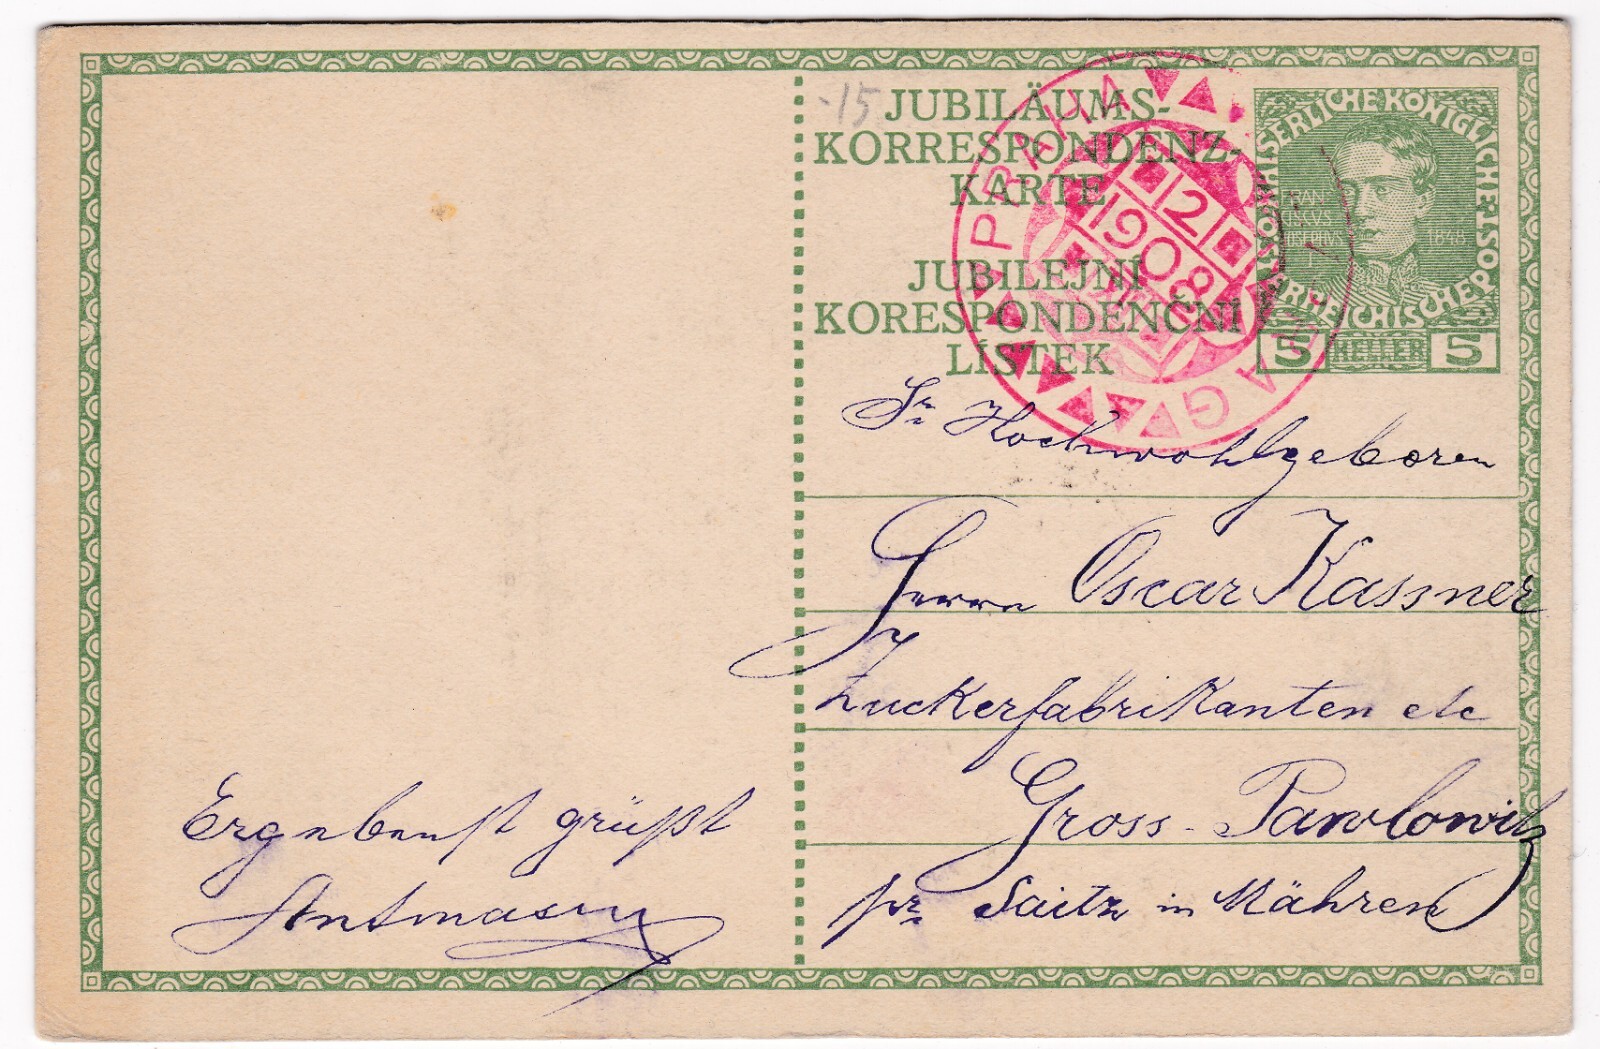 -15
JUBILÄUMS-
KORRESPONDENZ-
KARTE
JUBILEJNÍ
KORESPONDENČNÍ
LÍSTEK
PRAHA
PRAG
2
1908
XII
KAISERLICHE KÖNIGLICHE ÖSTERREICHISCHE POST
FRAN
CISCVS
IOSEPHVS
I
1848
5 HELLER 5
Sr Hochwohlgeboren
Herrn Oscar Kassner
Zuckerfabrikanten etc
Gross-Pawlowitz
pr Saitz in Mähren
Ergebenst grüßt